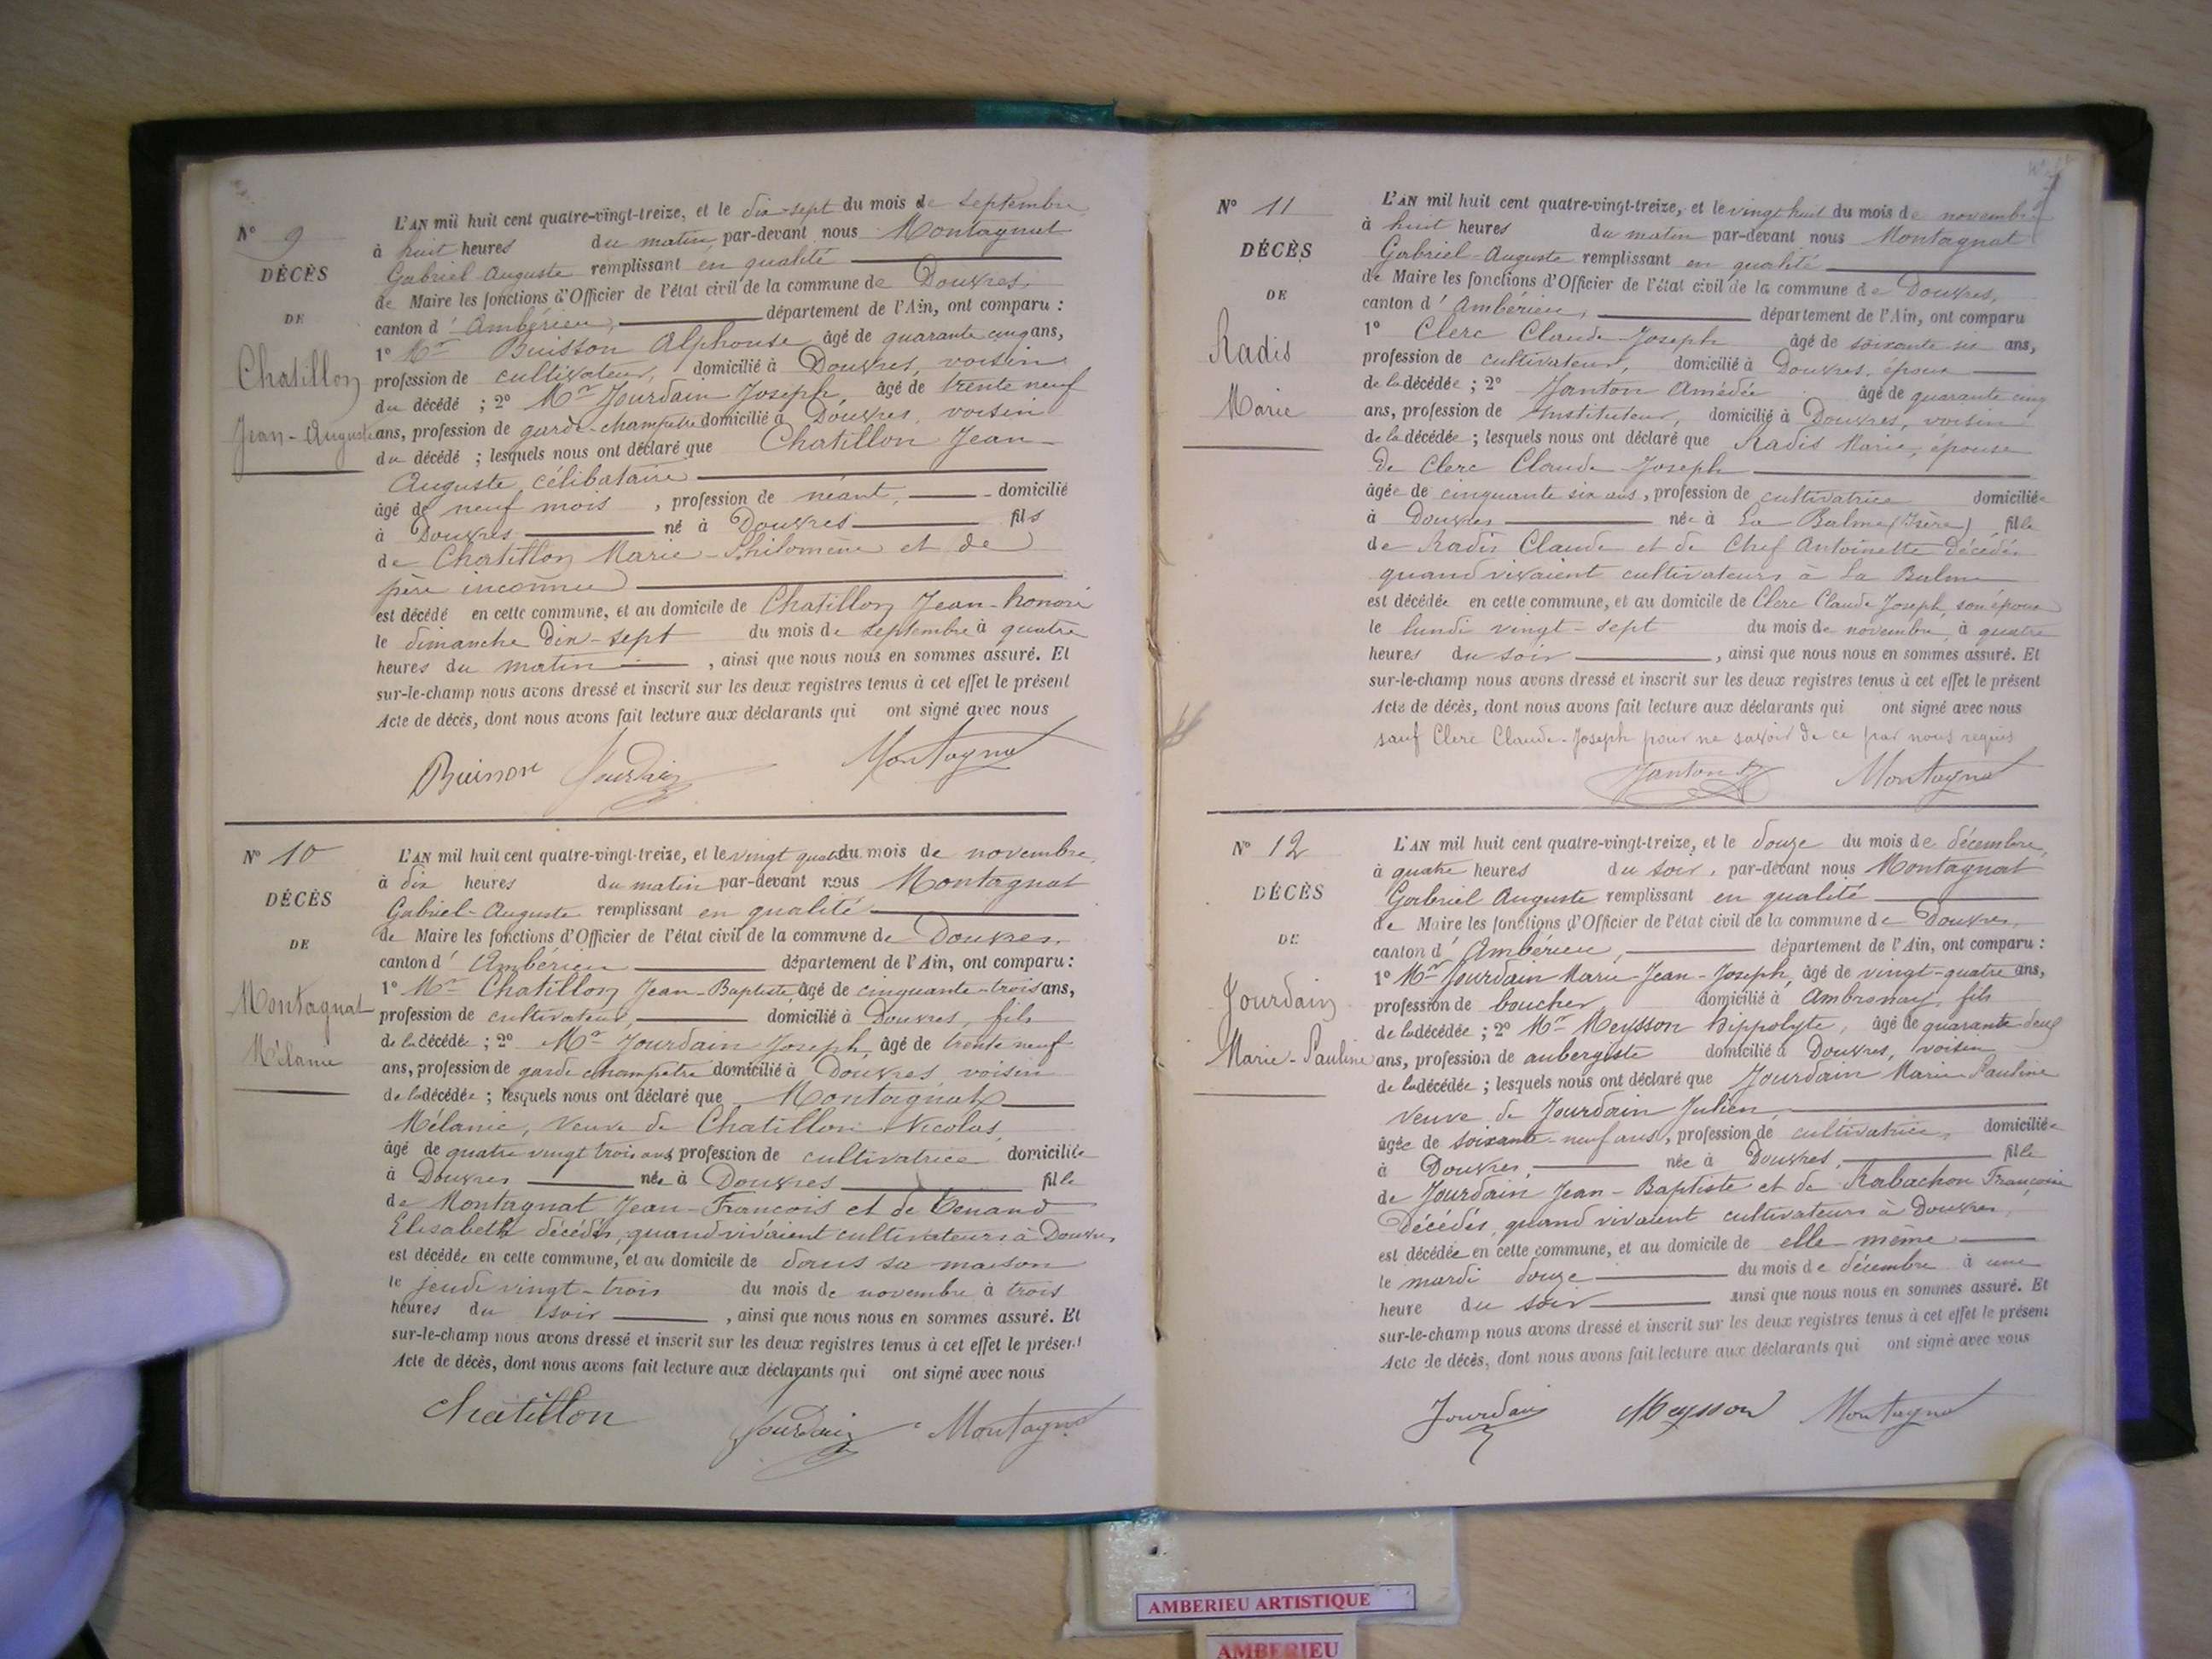 N° 9
DÉCÈS
DE
Chatillon
Jean-Auguste
L'AN mil huit cent quatre-vingt-treize, et le dix-sept du mois de septembre
à huit heures du matin, par-devant nous Montagnat
Gabriel Auguste remplissant en qualité
de Maire les fonctions d'Officier de l'état civil de la commune de Douvres,
canton d'Ambérieu, département de l'Ain, ont comparu :
1° Mr Buisson Alphonse âgé de quarante cinq ans,
profession de cultivateur, domicilié à Douvres, voisin
du décédé ; 2° Mr Jourdain Joseph, âgé de trente neuf
ans, profession de garde-champêtre domicilié à Douvres, voisin
du décédé ; lesquels nous ont déclaré que Chatillon Jean-
Auguste, célibataire
âgé de neuf mois, profession de néant, domicilié
à Douvres né à Douvres fils
de Chatillon Marie-Philomène et de
père inconnu
est décédé en cette commune, et au domicile de Chatillon Jean-honoré
le dimanche Dix-sept du mois de septembre à quatre
heures du matin, ainsi que nous nous en sommes assuré. Et
sur-le-champ nous avons dressé et inscrit sur les deux registres tenus à cet effet le présent
Acte de décès, dont nous avons fait lecture aux déclarants qui ont signé avec nous
Buisson Jourdain Montagnat
N° 10
DÉCÈS
DE
Montagnat
Mélanie
L'AN mil huit cent quatre-vingt-treize, et le vingt quatre du mois de novembre,
à dix heures du matin par-devant nous Montagnat
Gabriel-Auguste remplissant en qualité
de Maire les fonctions d'Officier de l'état civil de la commune de Douvres,
canton d'Ambérieu département de l'Ain, ont comparu :
1° Mr Chatillon Jean-Baptiste, âgé de cinquante-trois ans,
profession de cultivateur, domicilié à Douvres, fils
de la décédée ; 2° Mr Jourdain Joseph, âgé de trente neuf
ans, profession de garde champêtre domicilié à Douvres, voisin
de la décédée ; lesquels nous ont déclaré que Montagnat
Mélanie, veuve de Chatillon Nicolas,
âgé de quatre vingt trois ans, profession de cultivatrice domiciliée
à Douvres née à Douvres fille
de Montagnat Jean-François et de Tenand
Elisabeth décédés, quand vivaient cultivateurs à Douvres
est décédée en cette commune, et au domicile de dans sa maison
le jeudi vingt-trois du mois de novembre à trois
heures du soir, ainsi que nous nous en sommes assuré. Et
sur-le-champ nous avons dressé et inscrit sur les deux registres tenus à cet effet le présent
Acte de décès, dont nous avons fait lecture aux déclarants qui ont signé avec nous
Chatillon Jourdain Montagnat
N° 11
DÉCÈS
DE
Radis
Marie
L'AN mil huit cent quatre-vingt-treize, et le vingt huit du mois de novembre
à huit heures du matin par-devant nous Montagnat
Gabriel-Auguste remplissant en qualité
de Maire les fonctions d'Officier de l'état civil de la commune de Douvres,
canton d'Ambérieu, département de l'Ain, ont comparu
1° Clerc Claude-Joseph âgé de soixante un ans,
profession de cultivateur, domicilié à Douvres, époux
de la décédée ; 2° Janton Amédée âgé de quarante cinq
ans, profession de Instituteur, domicilié à Douvres, voisin
de la décédée ; lesquels nous ont déclaré que Radis Marie, épouse
De Clerc Claude Joseph
âgée de cinquante six ans, profession de cultivatrice domiciliée
à Douvres née à La Balme (Isère) fille
de Radis Claude et de Chef Antoinette Décédés
quand vivaient cultivateurs à La Balme
est décédée en cette commune, et au domicile de Clerc Claude Joseph, son époux
le lundi vingt-sept du mois de novembre, à quatre
heures du soir, ainsi que nous nous en sommes assuré. Et
sur-le-champ nous avons dressé et inscrit sur les deux registres tenus à cet effet le présent
Acte de décès, dont nous avons fait lecture aux déclarants qui ont signé avec nous
sauf Clerc Claude-Joseph pour ne savoir de ce par nous requis
Janton Montagnat
N° 12
DÉCÈS
DE
Jourdain
Marie-Pauline
L'AN mil huit cent quatre-vingt-treize, et le douze du mois de décembre,
à quatre heures du soir, par-devant nous Montagnat
Gabriel Auguste remplissant en qualité
de Maire les fonctions d'Officier de l'état civil de la commune de Douvres,
canton d'Ambérieu, département de l'Ain, ont comparu :
1° Mr Jourdain Marie-Jean-Joseph, âgé de vingt-quatre ans,
profession de boucher domicilié à Ambronay, fils
de la décédée ; 2° Mr Meysson hippolyte, âgé de quarante deux
ans, profession de aubergiste domicilié à Douvres, voisin
de la décédée ; lesquels nous ont déclaré que Jourdain Marie Pauline
veuve de Jourdain Julien,
âgée de soixante-neuf ans, profession de cultivatrice, domiciliée
à Douvres, née à Douvres, fille
de Jourdain Jean-Baptiste et de Rabachon Françoise
Décédés, quand vivaient cultivateurs à Douvres,
est décédée en cette commune, et au domicile de elle-même
le mardi douze du mois de décembre à une
heure du soir ainsi que nous nous en sommes assuré. Et
sur-le-champ nous avons dressé et inscrit sur les deux registres tenus à cet effet le présent
Acte de décès, dont nous avons fait lecture aux déclarants qui ont signé avec nous
Jourdain Meysson Montagnat
AMBERIEU ARTISTIQUE
AMBERIEU